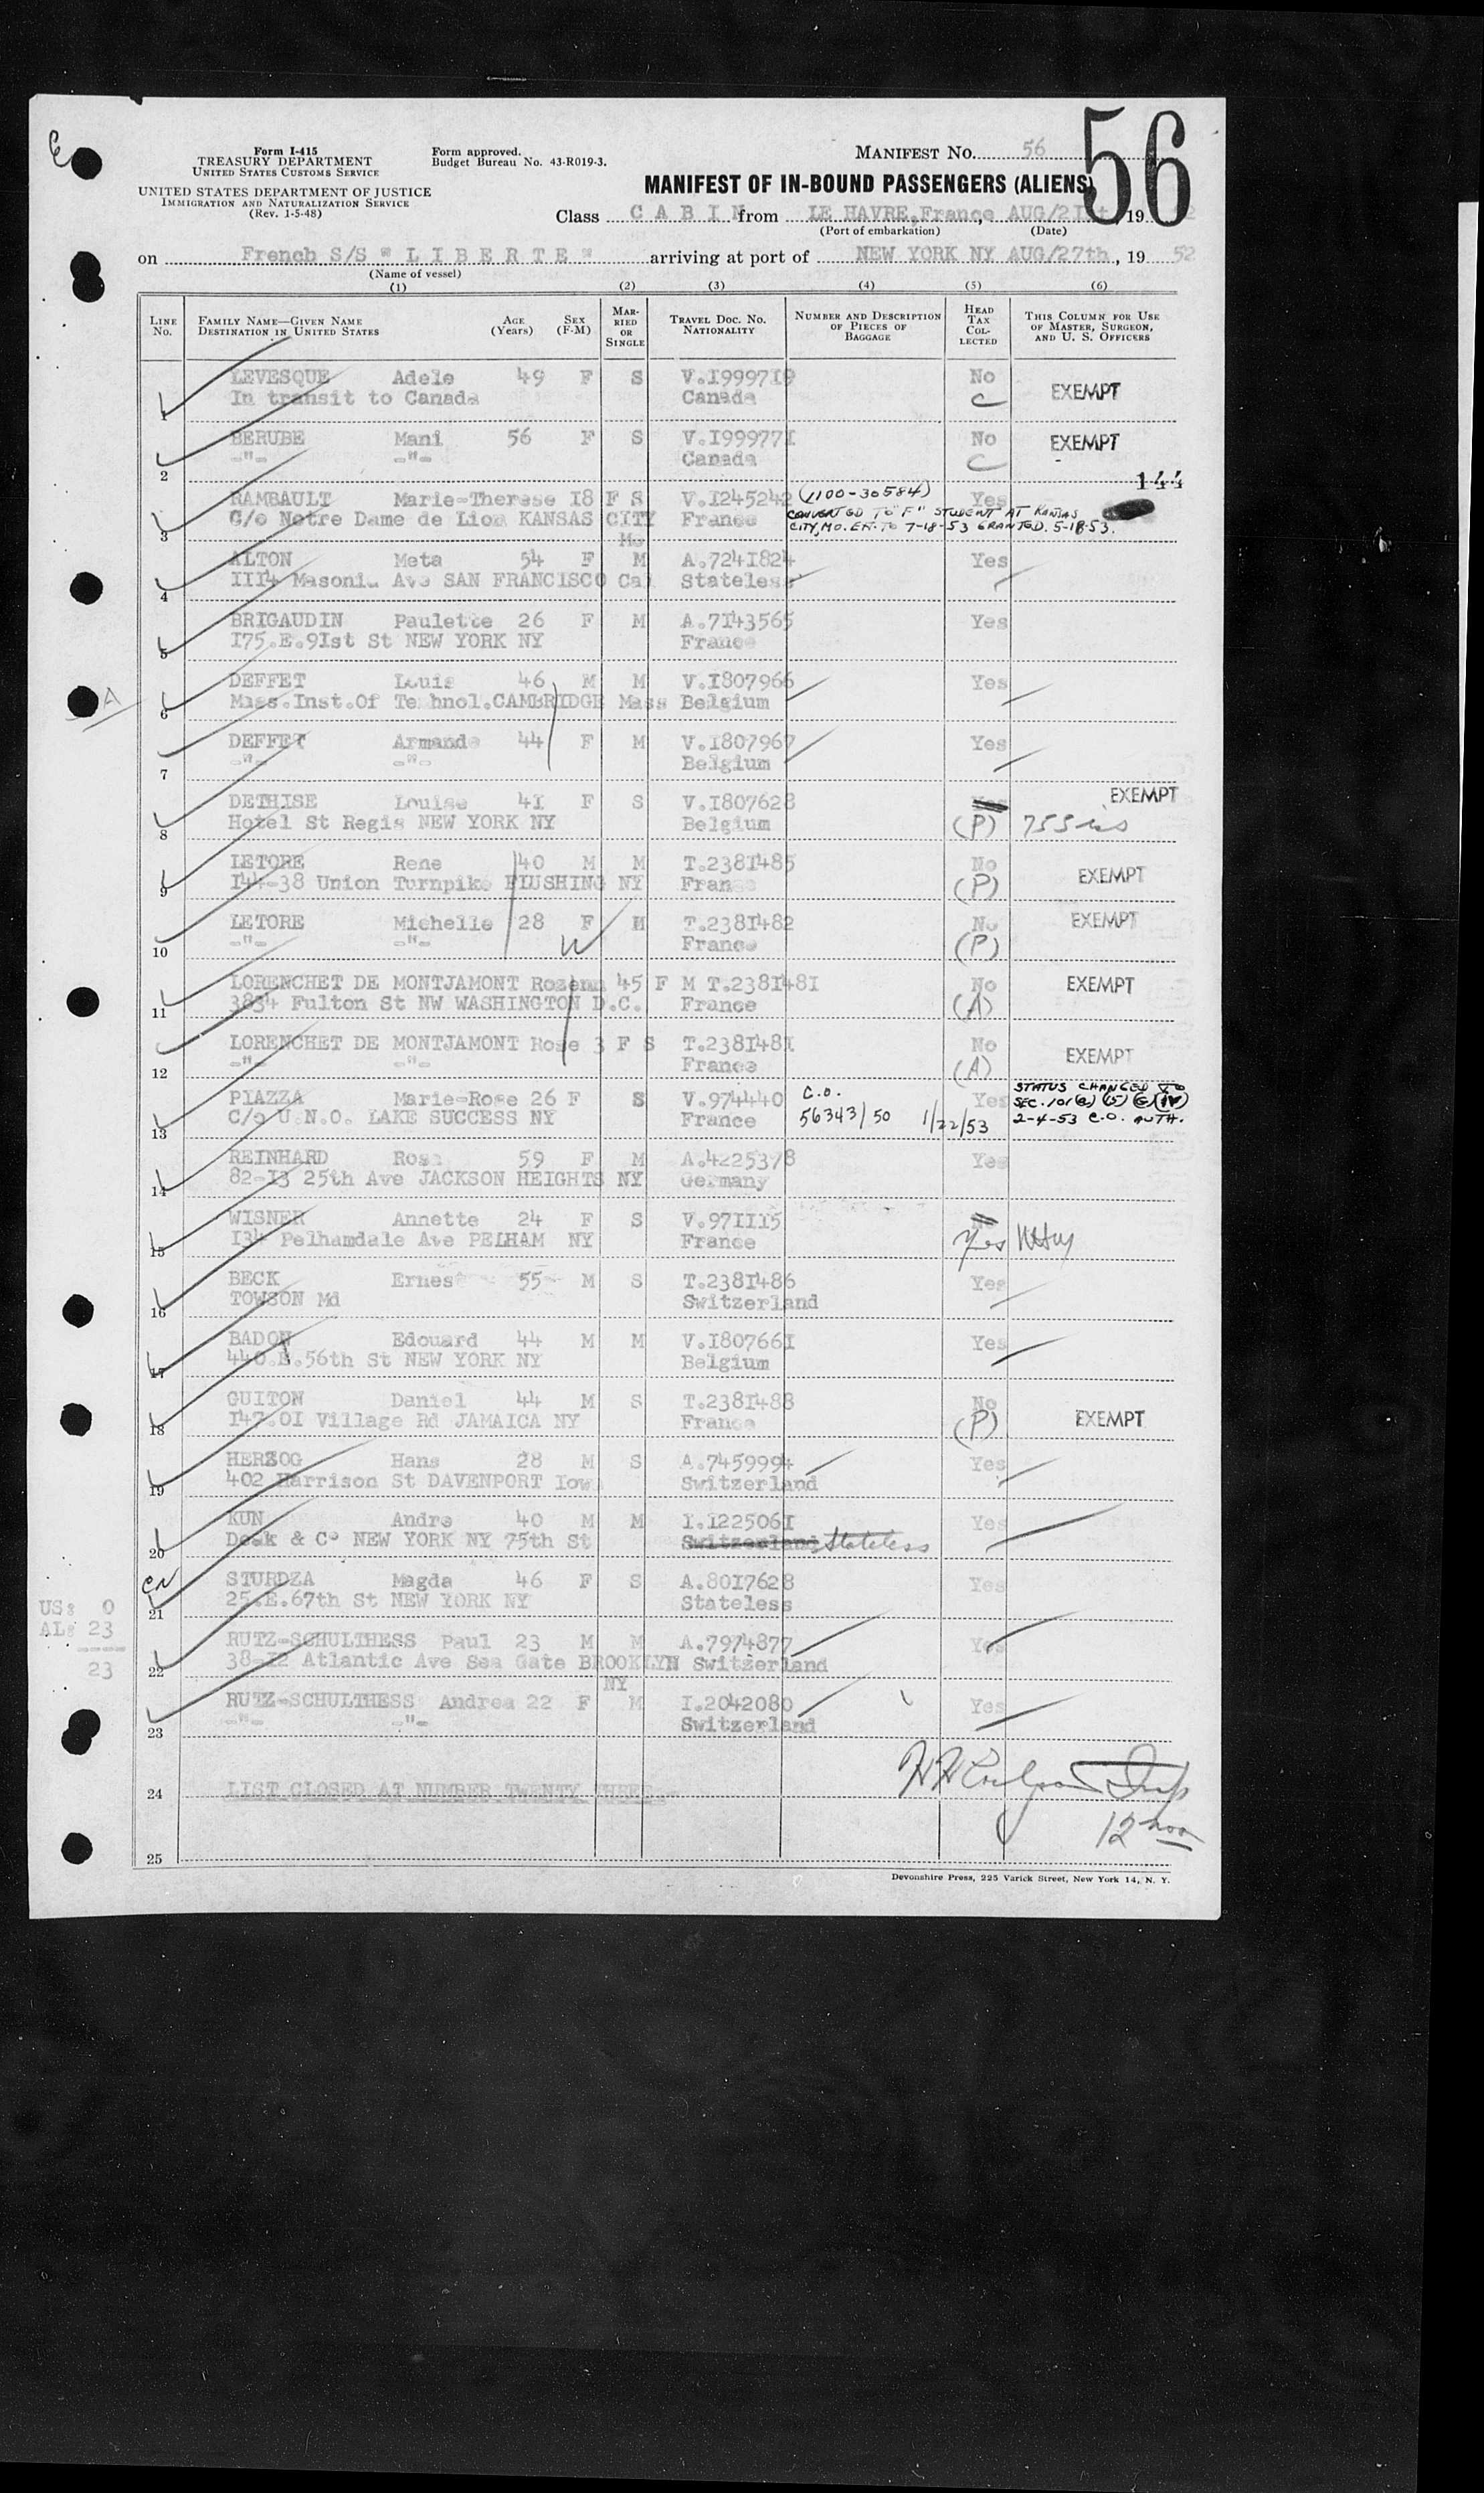 56
Form I-415
TREASURY DEPARTMENT
UNITED STATES CUSTOMS SERVICE
UNITED STATES DEPARTMENT OF JUSTICE
IMMIGRATION AND NATURALIZATION SERVICE
(Rev. 1-5-48)
Form approved.
Budget Bureau No. 43-R019-3.
MANIFEST NO. 56
MANIFEST OF IN-BOUND PASSENGERS (ALIENS)
Class C A B I N from LE HAVRE, France, AUG/21st, 19 2
(Port of embarkation) (Date)
on French S/S " L I B E R T E " arriving at port of NEW YORK NY AUG/27th, 19 52
(Name of vessel)
(1) (2) (3) (4) (5) (6)
LINE No. FAMILY NAME—GIVEN NAME DESTINATION IN UNITED STATES AGE (Years) SEX (F-M) MARRIED OR SINGLE TRAVEL DOC. NO. NATIONALITY NUMBER AND DESCRIPTION OF PIECES OF BAGGAGE HEAD TAX COLLECTED THIS COLUMN FOR USE OF MASTER, SURGEON, AND U. S. OFFICERS
1 LEVESQUE Adele 49 F S V.I999719 No EXEMPT
In transit to Canada Canada C
2 BERUBE Mani 56 F S V.I99977I No EXEMPT
-"- -"- Canada C
144
3 RAMBAULT Marie-Therese I8 F S V.I245242 (1100-30584) Yes
C/o Notre Dame de Lion KANSAS CITY Mo France CONVERTED TO "F" STUDENT AT KANSAS
CITY, MO. EX. TO 7-18-53 GRANTED. 5-18-53.
4 ALTON Meta 54 F M A.724I824 Yes
III4 Masonic Ave SAN FRANCISCO Cal Stateless
5 BRIGAUDIN Paulette 26 F M A.7I43565 Yes
I75.E.9Ist St NEW YORK NY France
6 DEFFET Louis 46 M M V.I807966 Yes
Mass.Inst.Of Technol.CAMBRIDGE Mass Belgium
7 DEFFET Armande 44 F M V.I807967 Yes
-"- -"- Belgium
8 DETHISE Louise 4I F S V.I807628 Yes EXEMPT
Hotel St Regis NEW YORK NY Belgium (P)
9 LETORE Rene 40 M M T.238I485 No EXEMPT
I44-38 Union Turnpike FLUSHING NY France (P)
10 LETORE Michelle 28 F M T.238I482 No EXEMPT
-"- -"- France (P)
11 LORENCHET DE MONTJAMONT Rozenn 45 F M T.238I48I No EXEMPT
3834 Fulton St NW WASHINGTON D.C. France (A)
12 LORENCHET DE MONTJAMONT Rose 3 F S T.238I48I No EXEMPT
-"- -"- France (A)
13 PIAZZA Marie-Rose 26 F S V.974440 C.O. Yes STATUS CHANGED TO
C/o U.N.O. LAKE SUCCESS NY France 56343/50 1/22/53 SEC. 101(a) (15) (G) (iv)
2-4-53 C.O. AUTH.
14 REINHARD Rosa 59 F M A.4225378 Yes
82-I3 25th Ave JACKSON HEIGHTS NY Germany
15 WISNER Annette 24 F S V.97III5
I34 Pelhamdale Ave PELHAM NY France Yes
16 BECK Ernest 55 M S T.238I486 Yes
TOWSON Md Switzerland
17 BADON Edouard 44 M M V.I80766I Yes
440.E.56th St NEW YORK NY Belgium
18 GUITON Daniel 44 M S T.238I488 No
I47.0I Village Rd JAMAICA NY France (P) EXEMPT
19 HERZOG Hans 28 M S A.7459994 Yes
402 Harrison St DAVENPORT Iowa Switzerland
20 KUN Andre 40 M M I.I22506I Yes
Deak & Co NEW YORK NY 75th St Switzerland Stateless
CN
21 STURDZA Magda 46 F S A.80I7628 Yes
25.E.67th St NEW YORK NY Stateless
US: 0
AL: 23
23
22 RUTZ-SCHULTHESS Paul 23 M M A.7974877 Yes
38-I2 Atlantic Ave Sea Gate BROOKLYN NY Switzerland
23 RUTZ-SCHULTHESS Andrea 22 F M I.2042080 Yes
-"- -"- Switzerland
24 LIST CLOSED AT NUMBER TWENTY THREE
12 noon
25
Devonshire Press, 225 Varick Street, New York 14, N. Y.